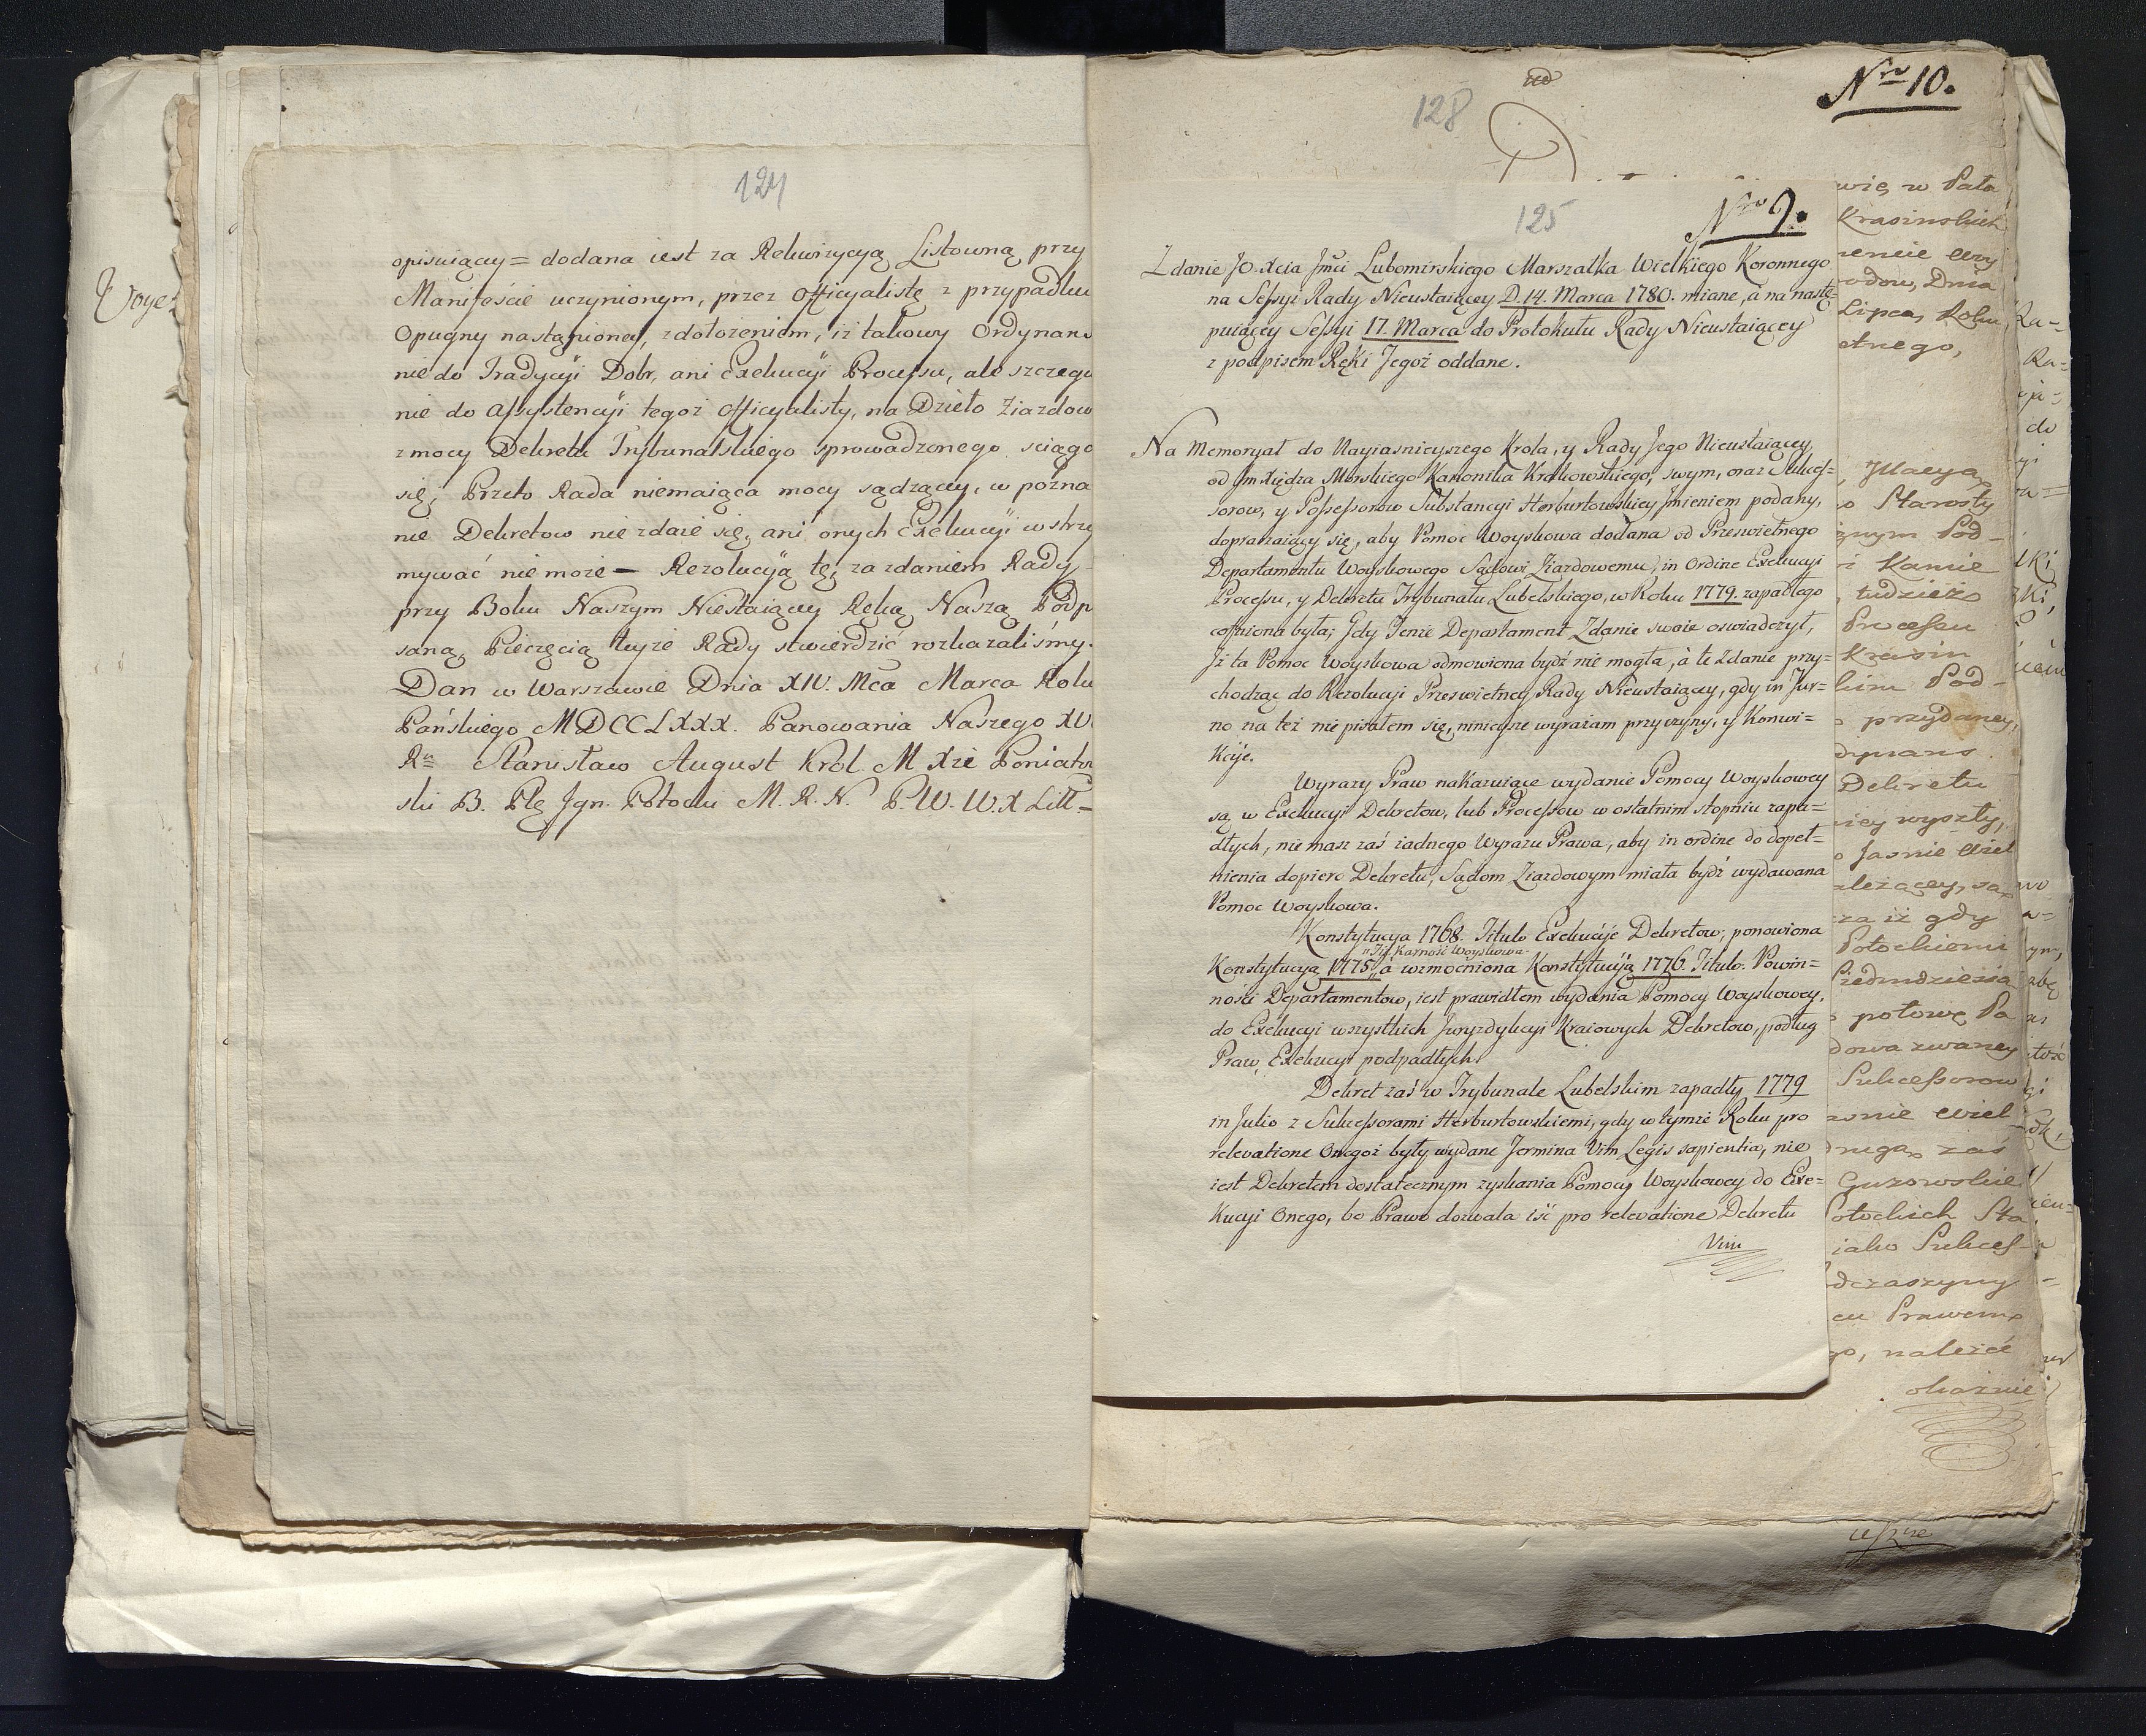 124
opisuiący = dodana iest za Rekwizycyą Listowną przy
Manifeście uczynionym, przez Officyalistę z przypadku
Opugny nastąpioney, zdołożeniem, iż takowy Ordynans
nie do Tradycyi Dobr, ani Exekucyi Processu, ale szczegu
nie do Assystencyi tegoż Officyalisty, na Dzieło Ziazdow
z mocy Dekretu Trybunalskiego sprowadzonego sciąga
się, Przeto Rada niemaiąca mocy sądzącey, w pozna
nie Dekretow nie zdaie się, ani onych Exekucyi wstrzy
mywać nie może — Rezolucyą tę, za zdaniem Rady
przy Boku Naszym Nieustaiącey Ręką Naszą Podp
saną, Pieczęcią teyże Rady stwierdzić rozkazaliśmy.
Dan w Warszawie Dnia XIV. Mca Marca Roku
Pańskiego MDCCLXXX. Panowania Naszego XV
Ru Stanisław August Król M Xże Poniatow
ski B. Płę Jgn. Potocki M. R. N. P. W. W. X Litt =
128
Nro 10.
125
Nro 9.
Zdanie JO. Xcia Jmci Lubomirskiego Marszałka Wielkiego Koronnego
na Sessyi Rady Nieustaiącey D. 14. Marca 1780. miane, à na nastę=
puiącey Sessyi 17. Marca do Protokułu Rady Nieustaiącey
z podpisem Ręki Jegoż oddane.
Na Memoryał do Nayiasnieyszego Krola, y Rady Jego Nieustaiącey
od Jm Xiędza Morskiego Kanonika Krakowskiego, swym, oraz Sukces=
sorow, y Possessorow Substancyi Herburtowskiey Jmieniem podany,
dopraszaiący się, aby Pomoc Woyskowa dodana od Przeswietnego
Departamentu Woyskowego Sądowi Ziazdowemu, in Ordine Exekucyi
Processu, y Dekretu Trybunału Lubelskiego, w Roku 1779. zapadłego
cofniona była; Gdy Tenże Departament Zdanie swoie oswiadczył,
Jż ta Pomoc Woyskowa odmowiona bydź nie mogła, à te Zdanie przy=
chodząc do Rezolucyi Przeswietney Rady Nieustaiącey, gdy in Tur=
no na też nie pisałem się, ninieysze wyrażam przyczyny, y Konwi=
kcye.
Wyrazy Praw nakazuiące wydanie Pomocy Woyskowey
są w Exekucyi Dekretow, lub Processow w ostatnim stopniu zapa=
dłych, nie masz zaś żadnego Wyrazu Prawa, aby in ordine do dopeł=
nienia dopiero Dekretu, Sądom Ziazdowym miała bydź wydawana
Pomoc Woyskowa.
Konstytucya 1768. Titulo Exekucye Dekretow; ponowiona
"Tit. Karność Woyskowa
Konstytucyą 1775, à wzmocniona Konstytucyą 1776. Titulo. Powin=
ności Departamentow, iest prawidłem wydania Pomocy Woyskowey,
do Exekucyi wszystkich Juryzdykcyi Kraiowych Dekretow, podług
Praw, Exekucyi podpadłych.
Dekret zaś w Trybunale Lubelskim zapadły 1779
in Julio z Sukcessorami Herburtowskiemi, gdy w tymże Roku pro
relevatione Onegoż były wydane Termina Vim Legis sapientia, nie
iest Dekretem dostatecznym zyskania Pomocy Woyskowey do Exe=
kucyi Onego, bo Prawo dozwala iść pro relevatione Dekretu
Vim
wię, w Pała
Krasinskich
Lipca, Roku
etnego,
Starosty
Pod=
Kamie
tudzież
Processu
Krasin
kim Pod=
przydaney,
dynans
Dekretu
wyszły,
Jasnie Wiel
leżącey, są
za iż gdy
Potockiemi
Siedmdziesią
połowę Pa
dowa zwaney
Sukcessorow
wnie Wiel
druga, zaś
Gurowskie
Potockich Sta
iako Sukces=
dczaszyny
Prawem,
go, należeć
okaznie